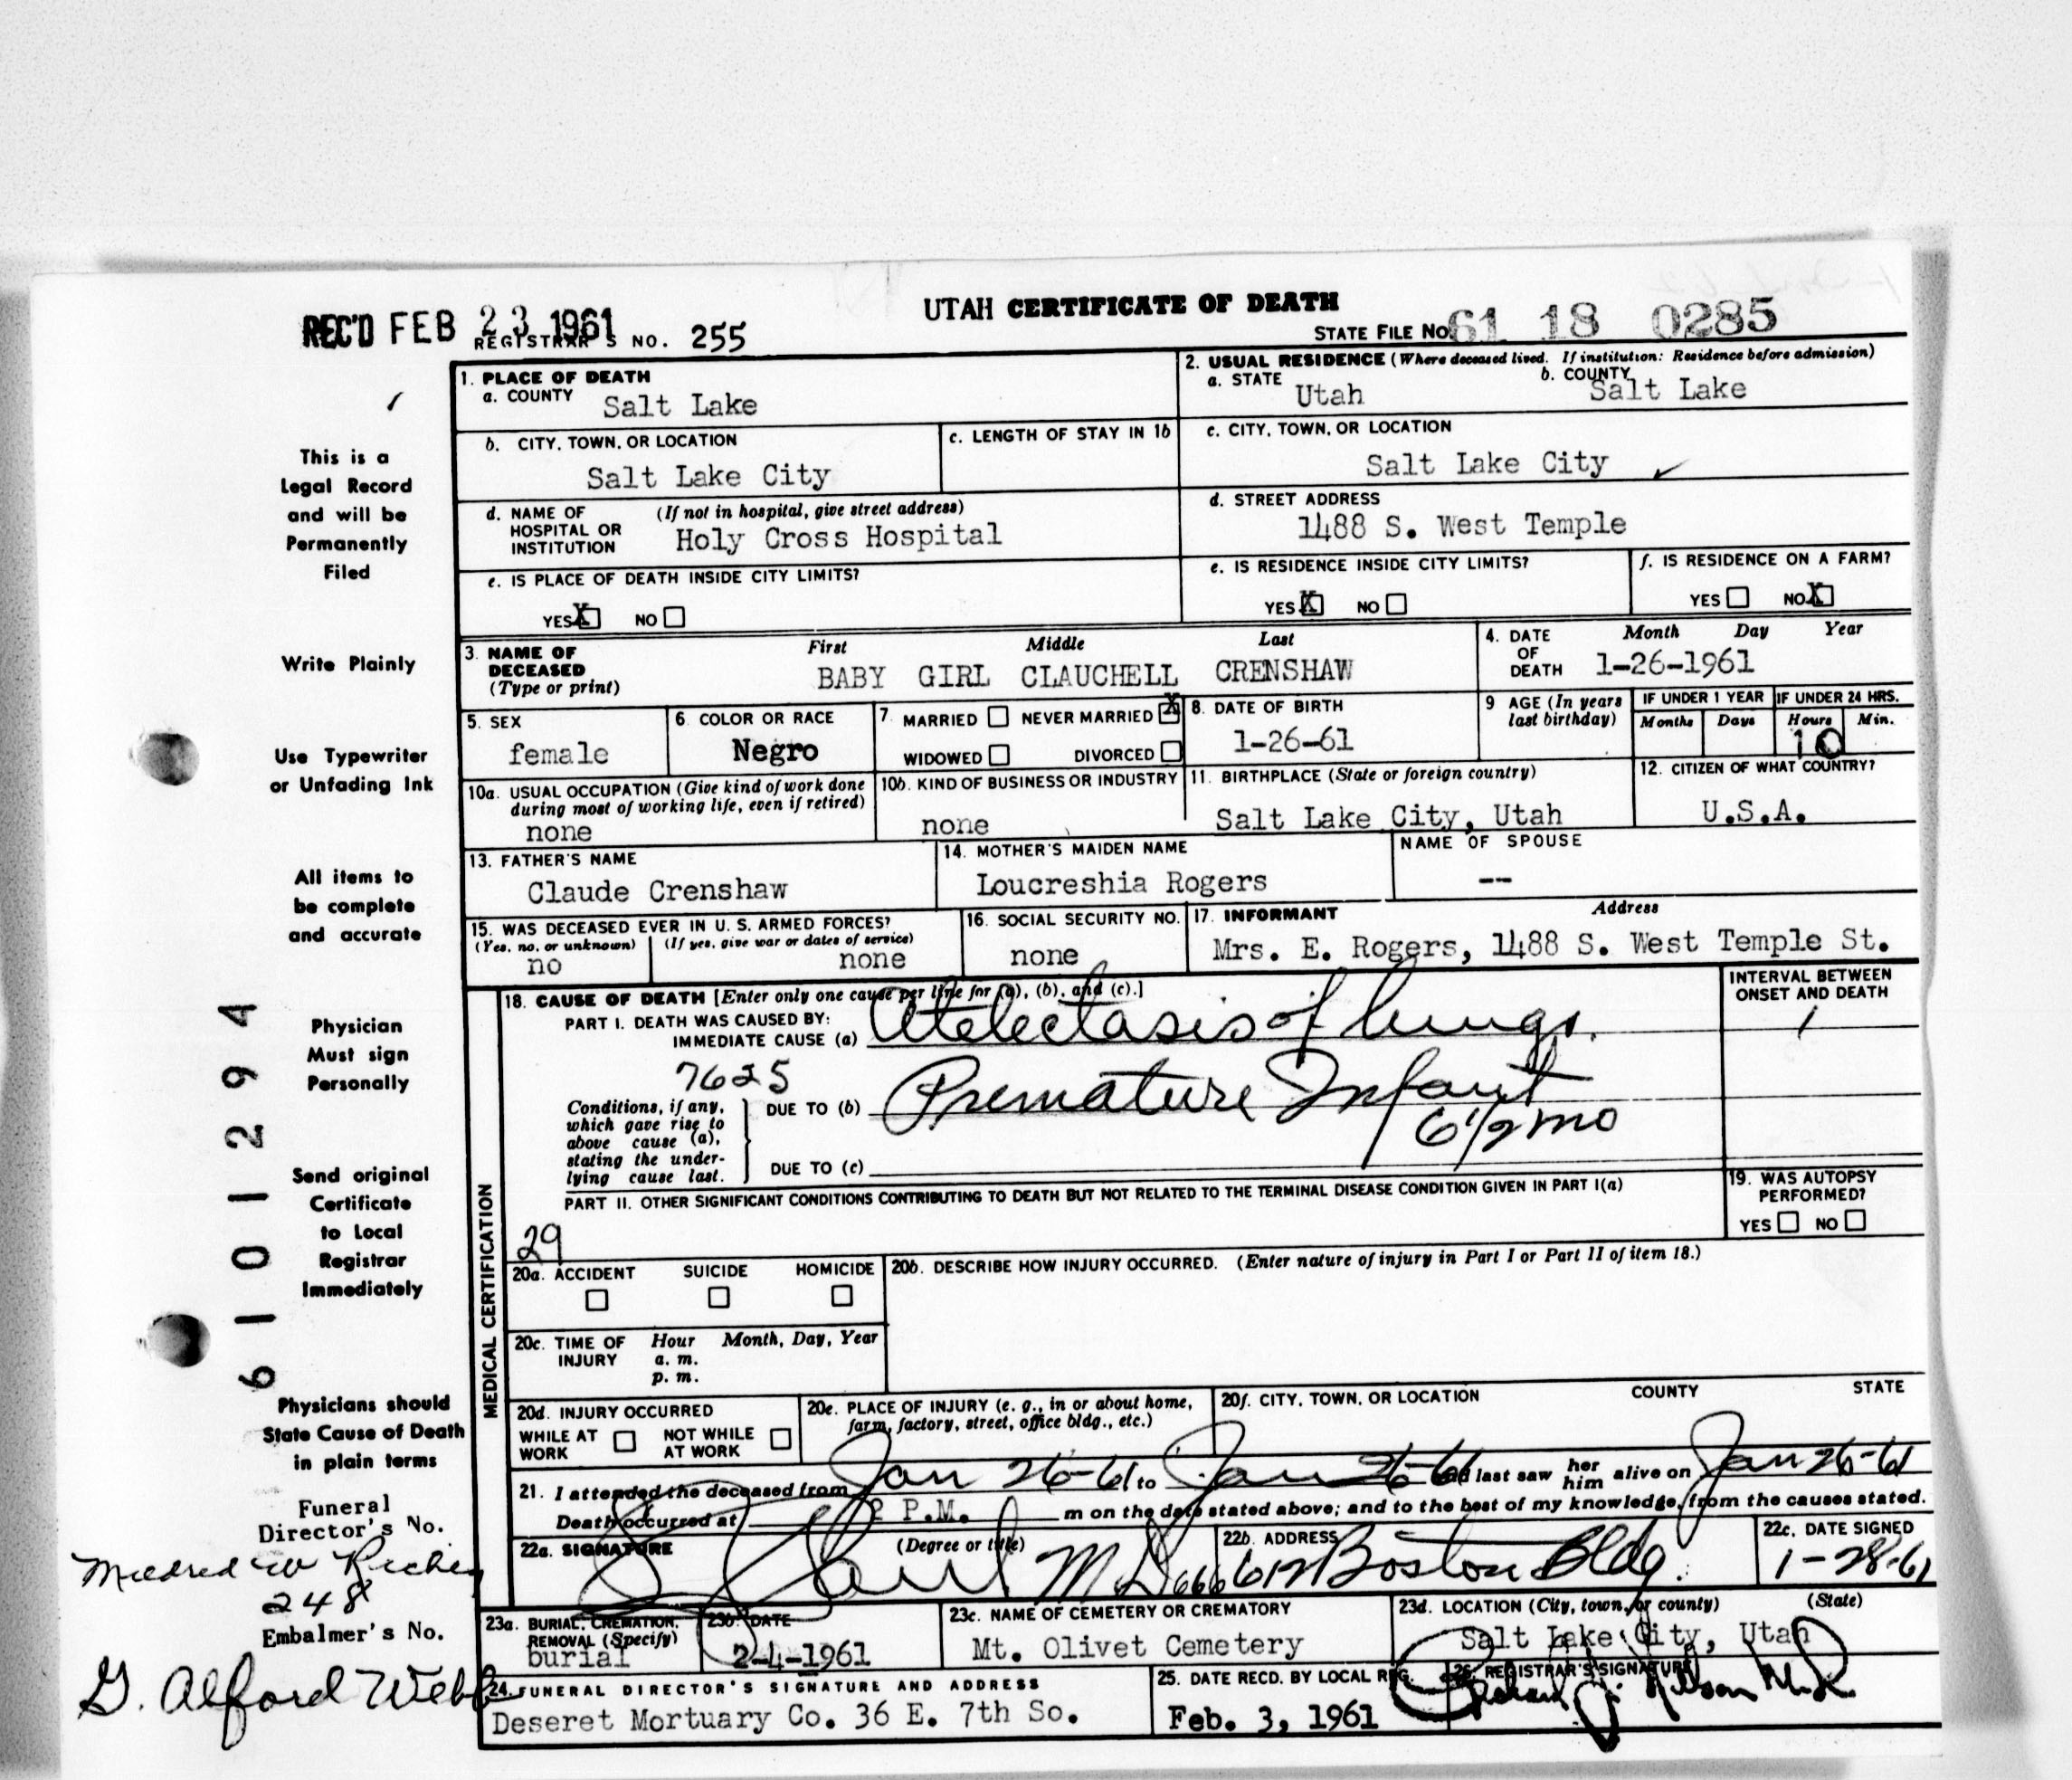 UTAH CERTIFICATE OF DEATH
REC'D FEB 23 1961
REGISTRAR'S NO. 255
STATE FILE NO. 61 18 0285
1. PLACE OF DEATH
a. COUNTY Salt Lake
2. USUAL RESIDENCE (Where deceased lived. If institution: Residence before admission)
a. STATE Utah b. COUNTY Salt Lake
b. CITY, TOWN, OR LOCATION Salt Lake City
c. LENGTH OF STAY IN 1b
c. CITY, TOWN, OR LOCATION Salt Lake City
d. NAME OF HOSPITAL OR INSTITUTION (If not in hospital, give street address) Holy Cross Hospital
d. STREET ADDRESS 1488 S. West Temple
e. IS PLACE OF DEATH INSIDE CITY LIMITS?
YES X NO
e. IS RESIDENCE INSIDE CITY LIMITS?
YES X NO
f. IS RESIDENCE ON A FARM?
YES NO X
3. NAME OF DECEASED (Type or print)
First Middle Last
BABY GIRL CLAUCHELL CRENSHAW
4. DATE OF DEATH Month Day Year
1-26-1961
5. SEX female
6. COLOR OR RACE Negro
7. MARRIED NEVER MARRIED X
WIDOWED DIVORCED
8. DATE OF BIRTH 1-26-61
9 AGE (In years last birthday)
IF UNDER 1 YEAR Months Days
IF UNDER 24 HRS. Hours Min.
10
10a. USUAL OCCUPATION (Give kind of work done during most of working life, even if retired) none
10b. KIND OF BUSINESS OR INDUSTRY none
11. BIRTHPLACE (State or foreign country) Salt Lake City, Utah
12. CITIZEN OF WHAT COUNTRY? U.S.A.
13. FATHER'S NAME Claude Crenshaw
14. MOTHER'S MAIDEN NAME Loucreshia Rogers
NAME OF SPOUSE --
15. WAS DECEASED EVER IN U. S. ARMED FORCES?
(Yes, no, or unknown) no (If yes, give war or dates of service) none
16. SOCIAL SECURITY NO. none
17. INFORMANT Address
Mrs. E. Rogers, 1488 S. West Temple St.
MEDICAL CERTIFICATION
18. CAUSE OF DEATH [Enter only one cause per line for (a), (b), and (c).]
INTERVAL BETWEEN ONSET AND DEATH
PART I. DEATH WAS CAUSED BY:
IMMEDIATE CAUSE (a) Atelectasis of lungs.
7625
Conditions, if any, which gave rise to above cause (a), stating the underlying cause last.
DUE TO (b) Premature Infant
6 1/2 mo
DUE TO (c)
PART II. OTHER SIGNIFICANT CONDITIONS CONTRIBUTING TO DEATH BUT NOT RELATED TO THE TERMINAL DISEASE CONDITION GIVEN IN PART I(a)
29
19. WAS AUTOPSY PERFORMED?
YES NO
20a. ACCIDENT SUICIDE HOMICIDE
20b. DESCRIBE HOW INJURY OCCURRED. (Enter nature of injury in Part I or Part II of item 18.)
20c. TIME OF INJURY Hour Month, Day, Year
a. m.
p. m.
20d. INJURY OCCURRED
WHILE AT WORK NOT WHILE AT WORK
20e. PLACE OF INJURY (e. g., in or about home, farm, factory, street, office bldg., etc.)
20f. CITY, TOWN, OR LOCATION COUNTY STATE
21. I attended the deceased from Jan 26-61 to Jan 26-61 and last saw her him alive on Jan 26-61
Death occurred at 2 P.M. m on the date stated above; and to the best of my knowledge, from the causes stated.
22a. SIGNATURE (Degree or title) M.D.
22b. ADDRESS 612 Boston Bldg.
22c. DATE SIGNED 1-28-61
23a. BURIAL, CREMATION, REMOVAL (Specify) burial
23b. DATE 2-4-1961
23c. NAME OF CEMETERY OR CREMATORY Mt. Olivet Cemetery
23d. LOCATION (City, town, or county) (State)
Salt Lake City, Utah
24. FUNERAL DIRECTOR'S SIGNATURE AND ADDRESS
Deseret Mortuary Co. 36 E. 7th So.
25. DATE RECD. BY LOCAL REG. Feb. 3, 1961
26. REGISTRAR'S SIGNATURE
This is a
Legal Record
and will be
Permanently
Filed
Write Plainly
Use Typewriter
or Unfading Ink
All items to
be complete
and accurate
Physician
Must sign
Personally
Send original
Certificate
to Local
Registrar
Immediately
Physicians should
State Cause of Death
in plain terms
Funeral
Director's No.
Mildred W
248
Embalmer's No.
G. Alford Webb
6101294